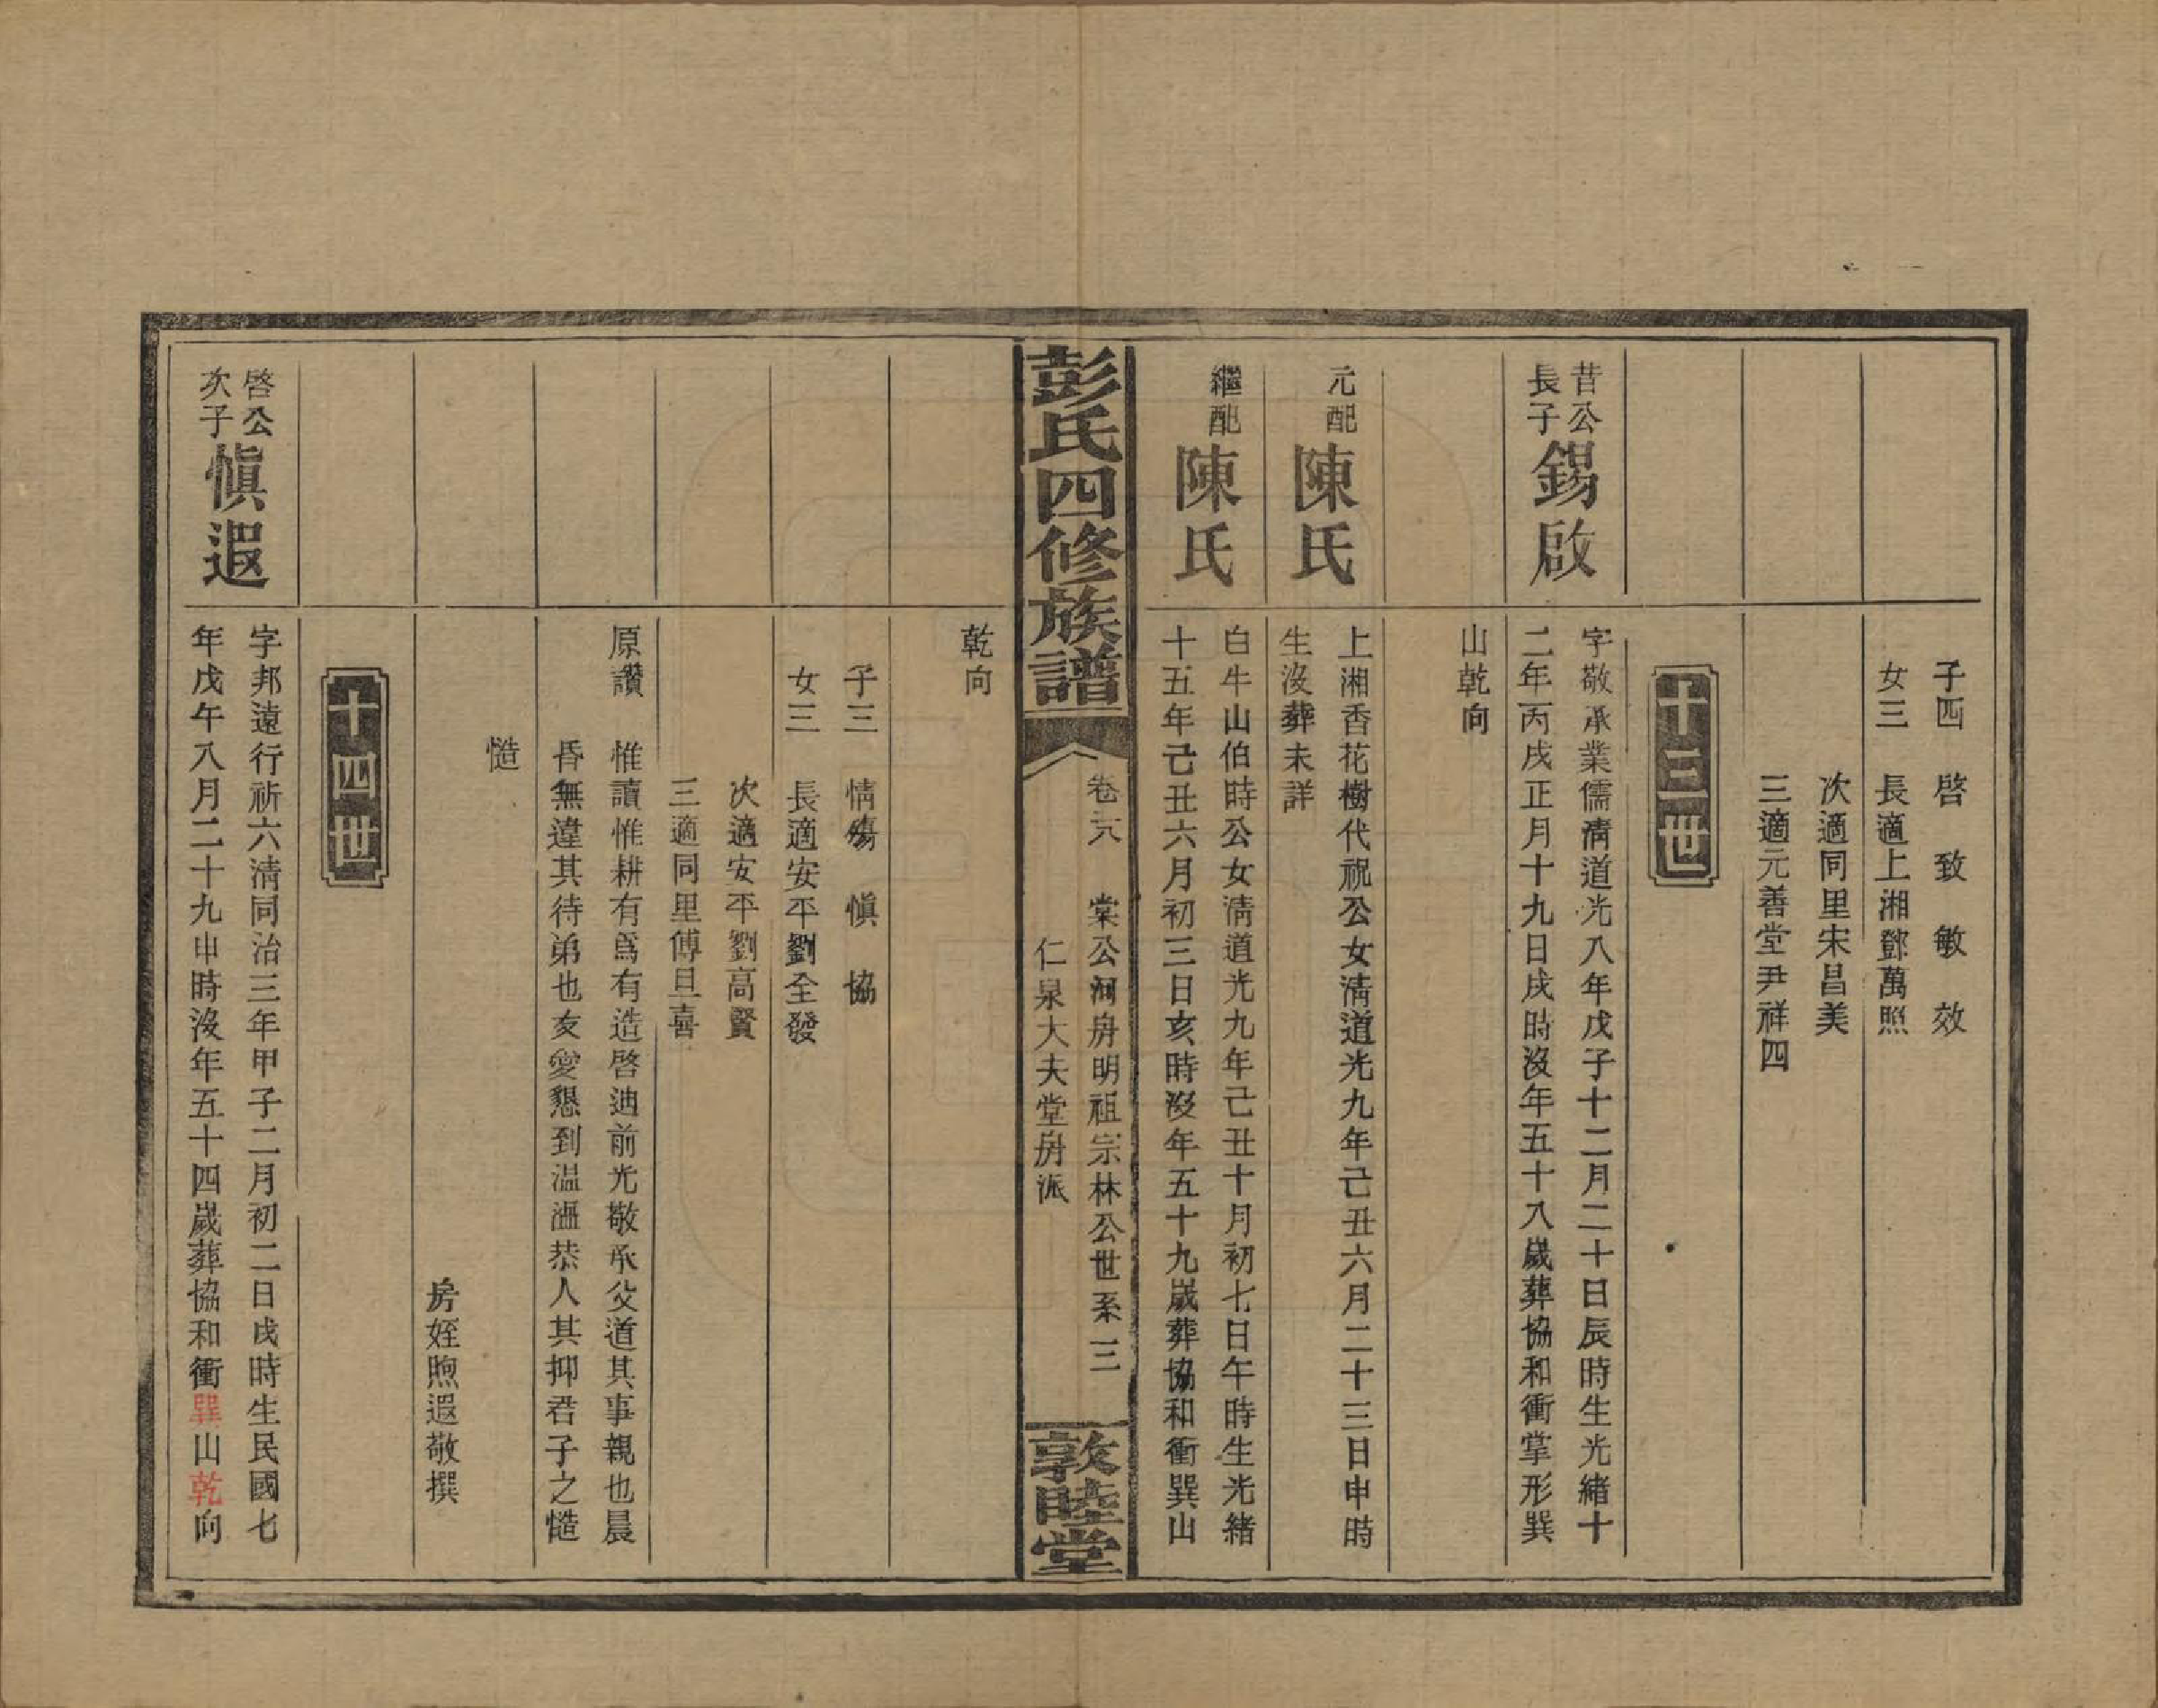 子四　啓　致　敏　效
女三　長適上湘鄧萬照
次適同里宋昌美
三適元善堂尹祥四
十三世
昔公
長子
錫啟
字敬承業儒清道光八年戊子十二月二十日辰時生光緒十
二年丙戌正月十九日戌時沒年五十八歲葬協和衝掌形巽
山乾向
元配
陳氏
上湘香花樹代祝公女清道光九年己丑六月二十三日申時
生沒葬未詳
繼配
陳氏
白牛山伯時公女清道光九年己丑十月初七日午時生光緒
十五年己丑六月初三日亥時沒年五十九歲葬協和衝巽山
彭氏四修族譜
卷六　棠公河房明祖宗林公世系　三
仁泉大夫堂房派
敦睦堂
乾向
子三　情殤　愼　協
女三　長適安平劉全發
次適安平劉高賢
三適同里傅旦喜
原讚　惟讀惟耕有爲有造啓迪前光敬承父道其事親也晨
昏無違其待弟也友愛懇到溫溫恭人其抑君子之慥
慥
房姪煦遐敬撰
十四世
啓公
次子
愼遐
字邦遠行祈六清同治三年甲子二月初二日戌時生民國七
年戊午八月二十九申時沒年五十四歲葬協和衝巽山乾向